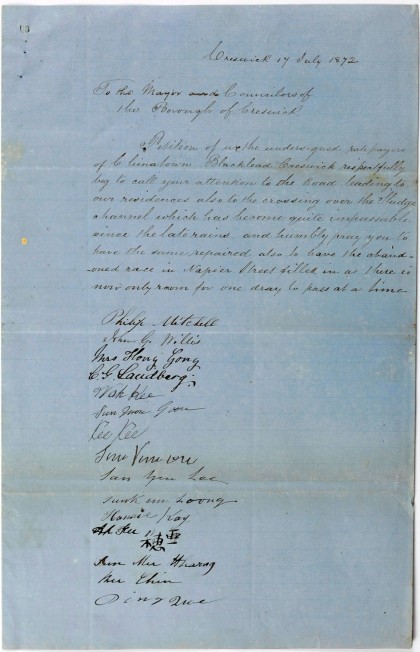 Creswick 17 July 1872
To the Mayor and Councilors of
the Borough of Creswick
Petition of us the undersigned ratepayers
of Chinatown Blacklead Creswick respectfully
beg to call your attention to the Road leading to
our residences also to the crossing over the Sludge
channel which has become quite impassable
since the late rains and humbly pray you to
have the same repaired also to have the aband-
oned race in Napier Street filled in as there is
now only room for one dray to pass at a time
Philip Mitchell
John G. Willis
Mrs Hong Gong
C. G. Landberg
Wah Hee
Sun
Lee Lee
San Yin Loe
Loong
Kay
Ah
穗
Ah Mee
Chin
Ping Que